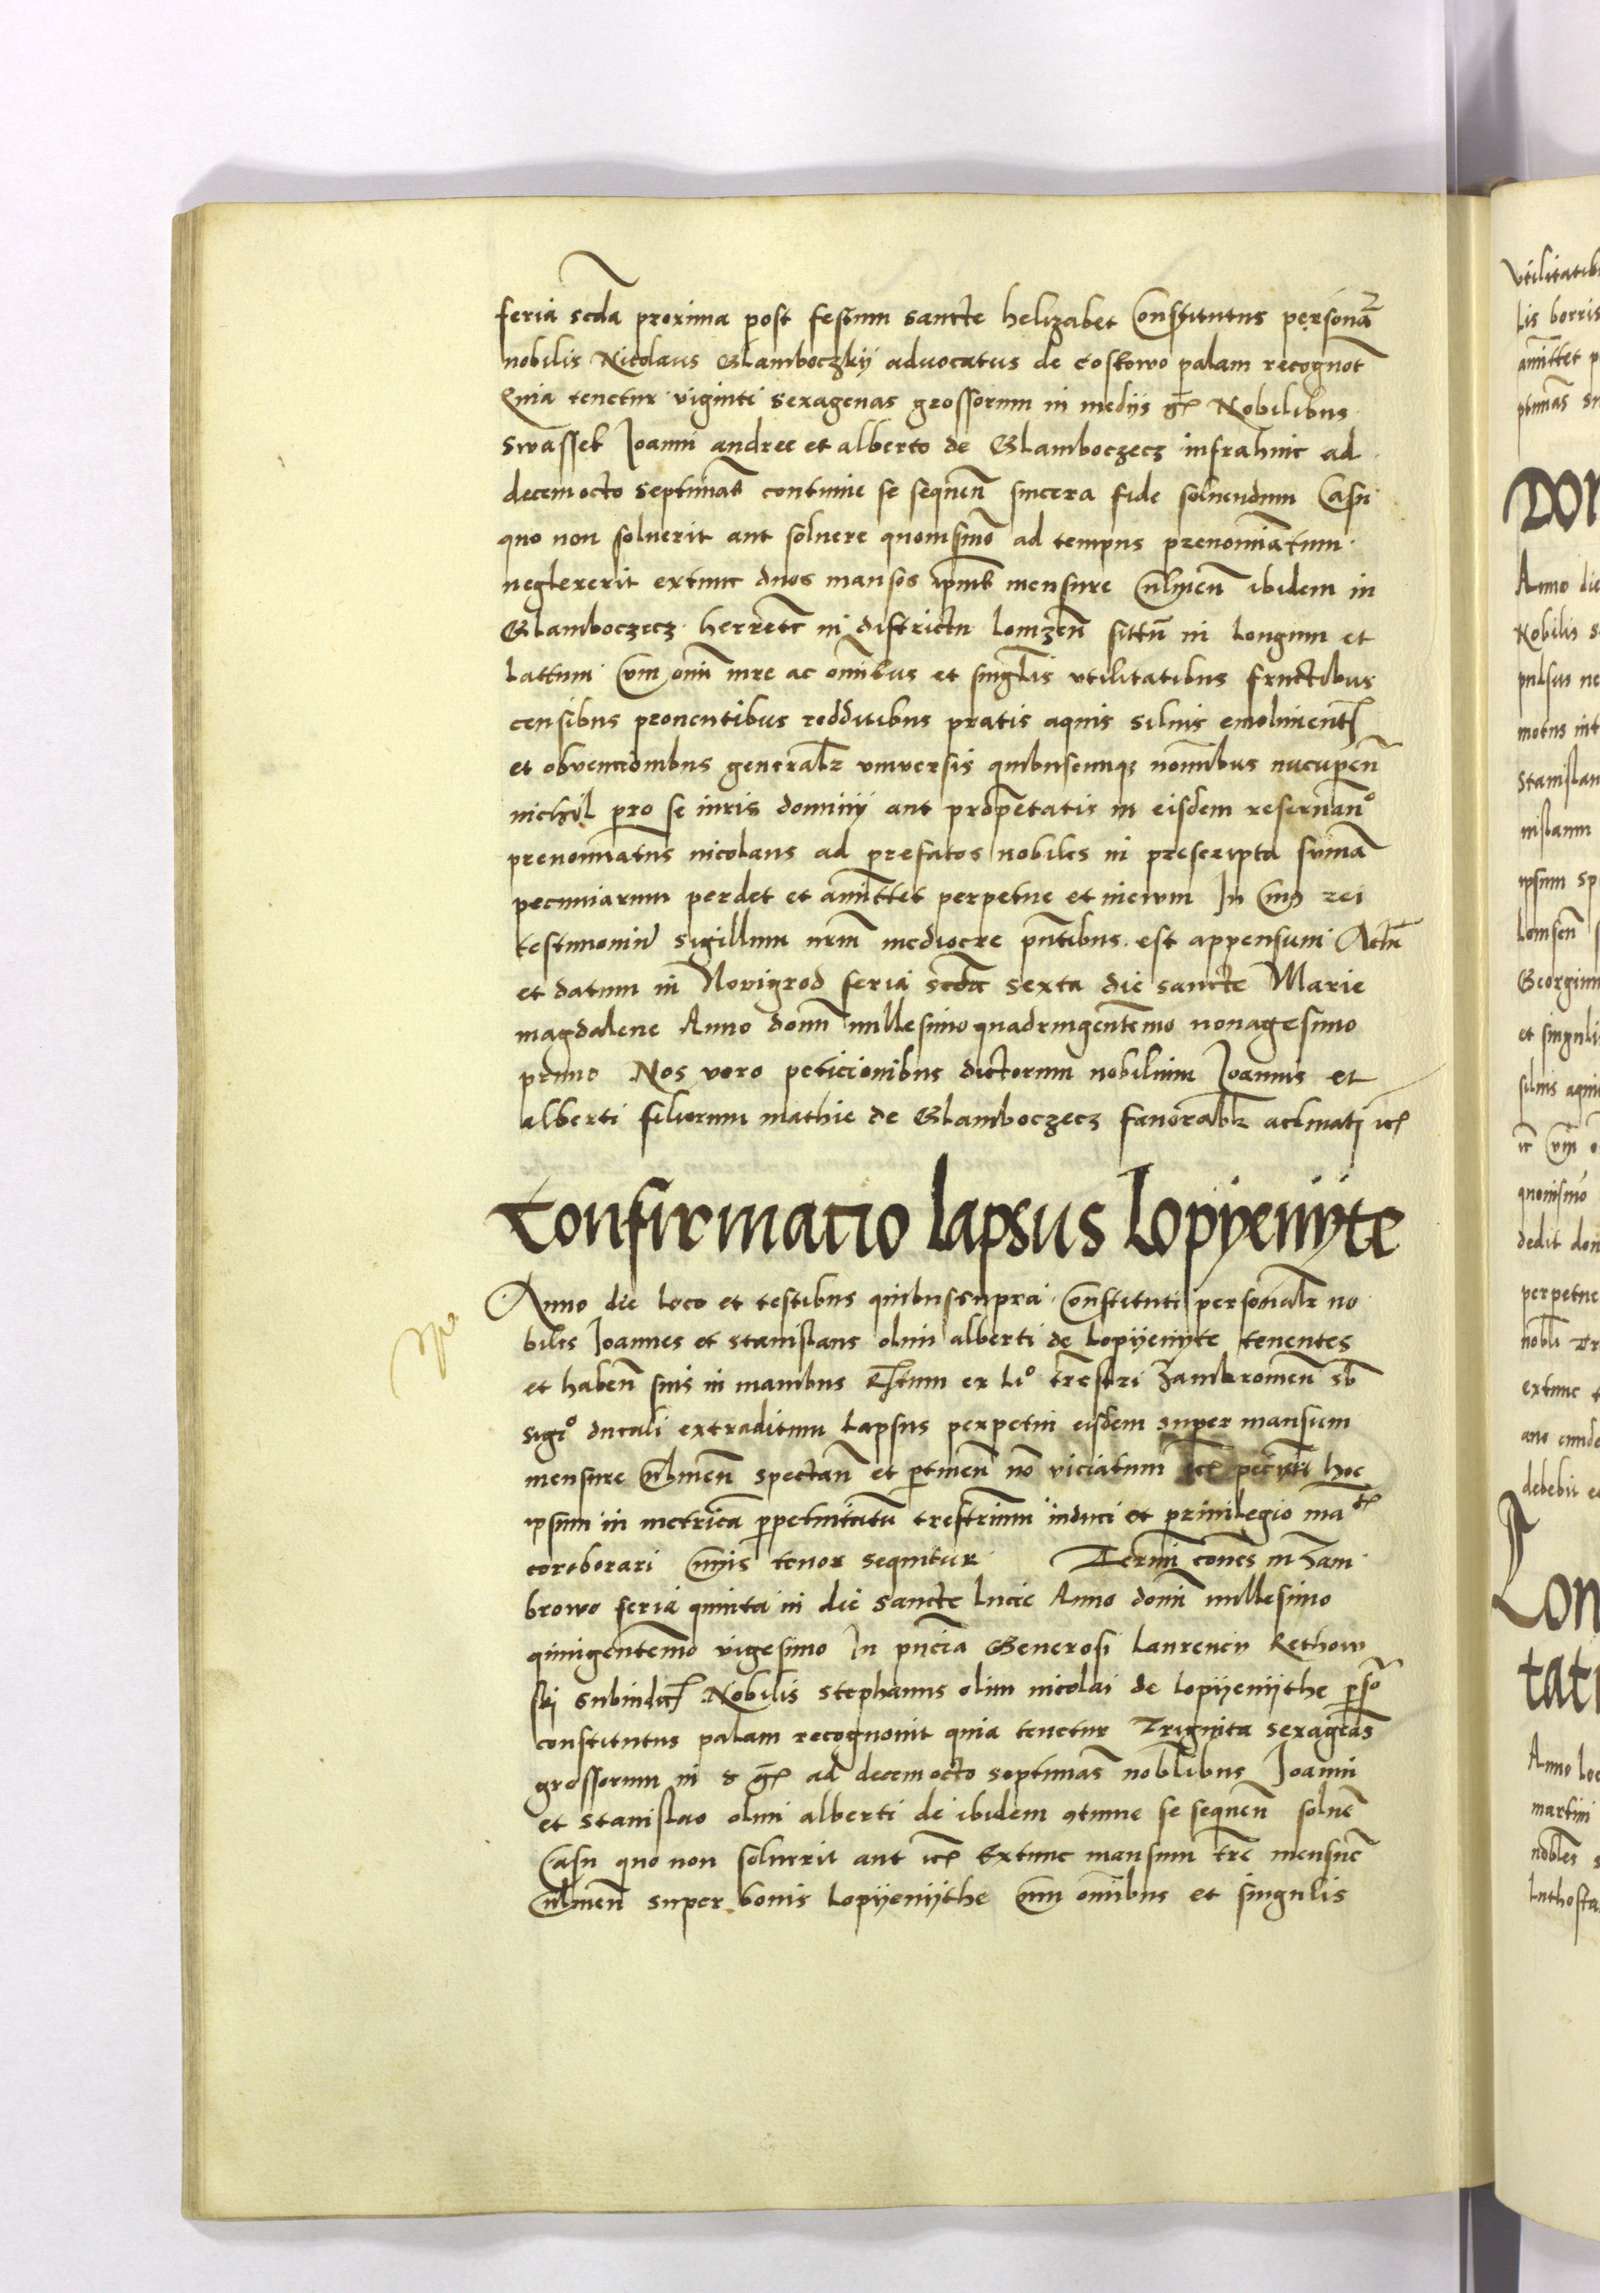 feria scda proxima post festum sancte helizabet Constitutus personar
nobilis Nicolaus Glamboczkij aduocatus de costowo palam recognot
Quia tenetur viginti sexagenas grossorum in medijs gr Nobilibus
Swassek Joanni andree et alberto de Glamboczecz infrahinc ad
decemocto septimas continue se sequen sincera fide soluendum Casu
quo non soluerit aut soluere quomsmo ad tempus prenominatum
neglexerit extunc duos mansos mensure Culmen ibidem in
Glamboczecz in districtu lomzen sittu in longum et
lattum Cum omni iure ac omnibus et singlis vtilitatibus fructibus
censibus prouentibus redditibus pratis aquis siluis emoliment
et obuentionibus generalr vniuersis quibuscunque nominibus nucupen
nichil pro se iuris dominij aut propetatis in eisdem reseruan°
prenominatus nicolaus ad prefatos nobiles in prescripta suma
pecuniarum perdet et amittet perpetue et in ewm In Cuius rei
testimoniu sigillum nrm mediocre pntibus est appensum Actu
et datum in Novigrod feria scda sexta die sancte Marie
magdalene Anno domi millesimo quadringentemo nonagesimo
primo Nos vero peticionibus dictorum nobilium Joannis et
alberti filiorum mathie de Glamboczecz fauorablr aclinati ic
Confirmatio lapsus Lopyenyte
Anno die loco et testibus quibus supra Constituti personalr no
biles Joannes et stanislaus olim alberti de Lopyenyte tenentes
et haben suis in manibus Rstum ex li° trestri Zambromen sb
sig° ducali extraditum lapsus perpetui eisdem super mansum
mensure Culmen spectan et ptinen no viciatum ic petiuti hoc
ipsum in metrica perpetuitatu trestrium induci et priuilegio ma
coroborari Cuius tenor sequitur Termi cones in Zam
browo feria quinta in die sancte lucie Anno domi millesimo
quingentemo vigesimo In pncia Generosi laurency Rethow
ski subiudic Nobilis stephanus olim nicolai de lopyenythe pso
constitutus palam recognouit quia tenetur Triginta sexageas
grossorum in 8 gr ad decemocto septimas noblibus Joanni
et stanislao olim alberti de ibidem 9tinue se sequen solue
Casu quo non soluerit aut ic Extunc mansum tre mensure
Culmen super bonis lopyenythe Cum omnibus et singulis